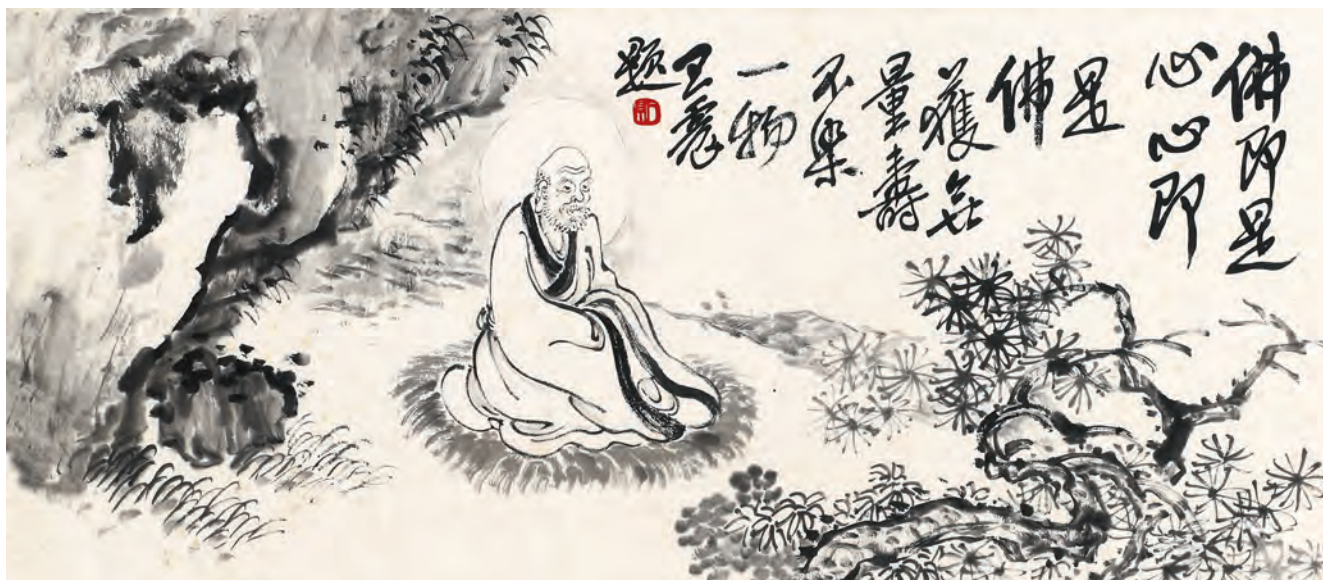 佛即是
心心即
是
佛
獲無
量壽
不樂
一物
王震
題